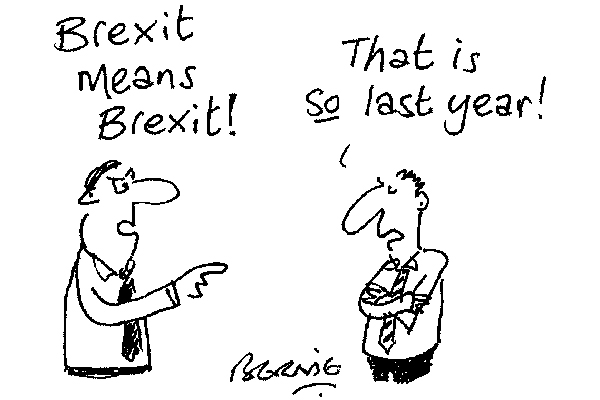 Brexit
means
Brexit!
That is
so last year!
BERNIE